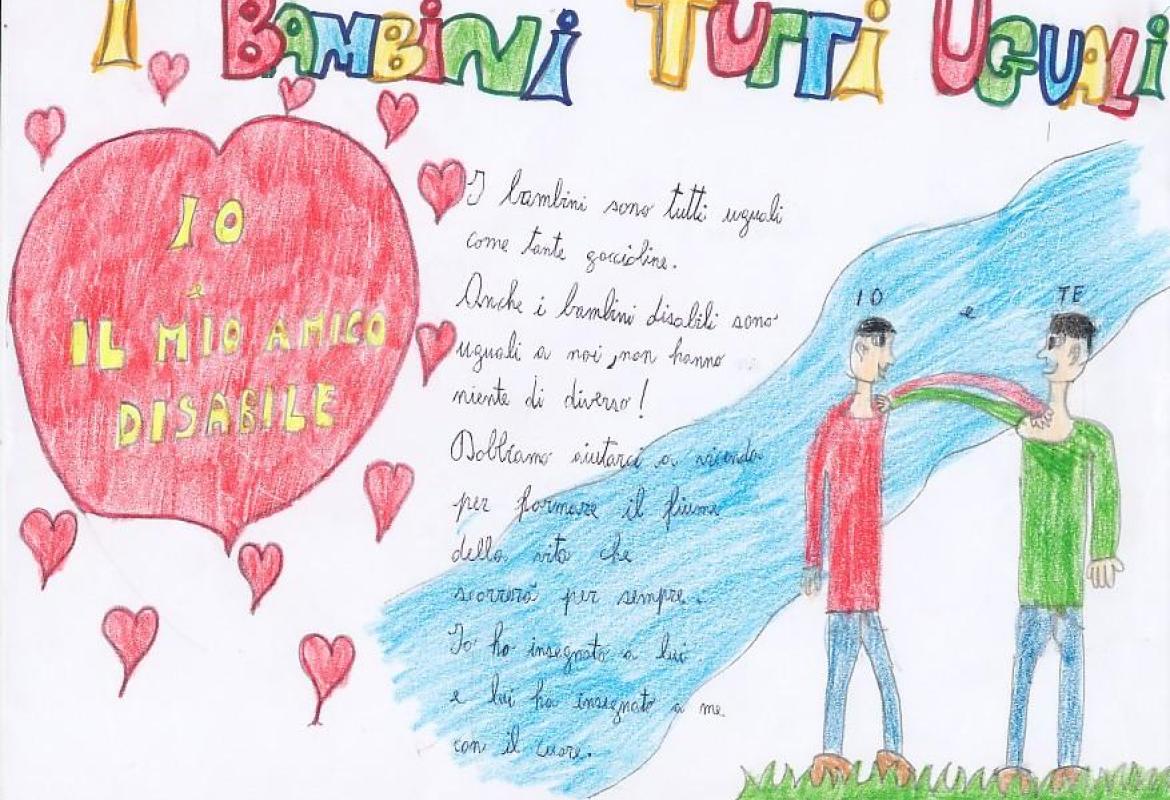 I BAMBINI TUTTI UGUALI
IO
e
IL MIO AMICO
DISABILE
I bambini sono tutti uguali
come tante goccioline.
Anche i bambini disabili sono
uguali a noi, non hanno
niente di diverso!
Dobbiamo aiutarci a vicenda
per formare il fiume
della vita che
scorrerà per sempre.
Io ho insegnato a lui
e lui ha insegnato a me
con il cuore.
IO e TE